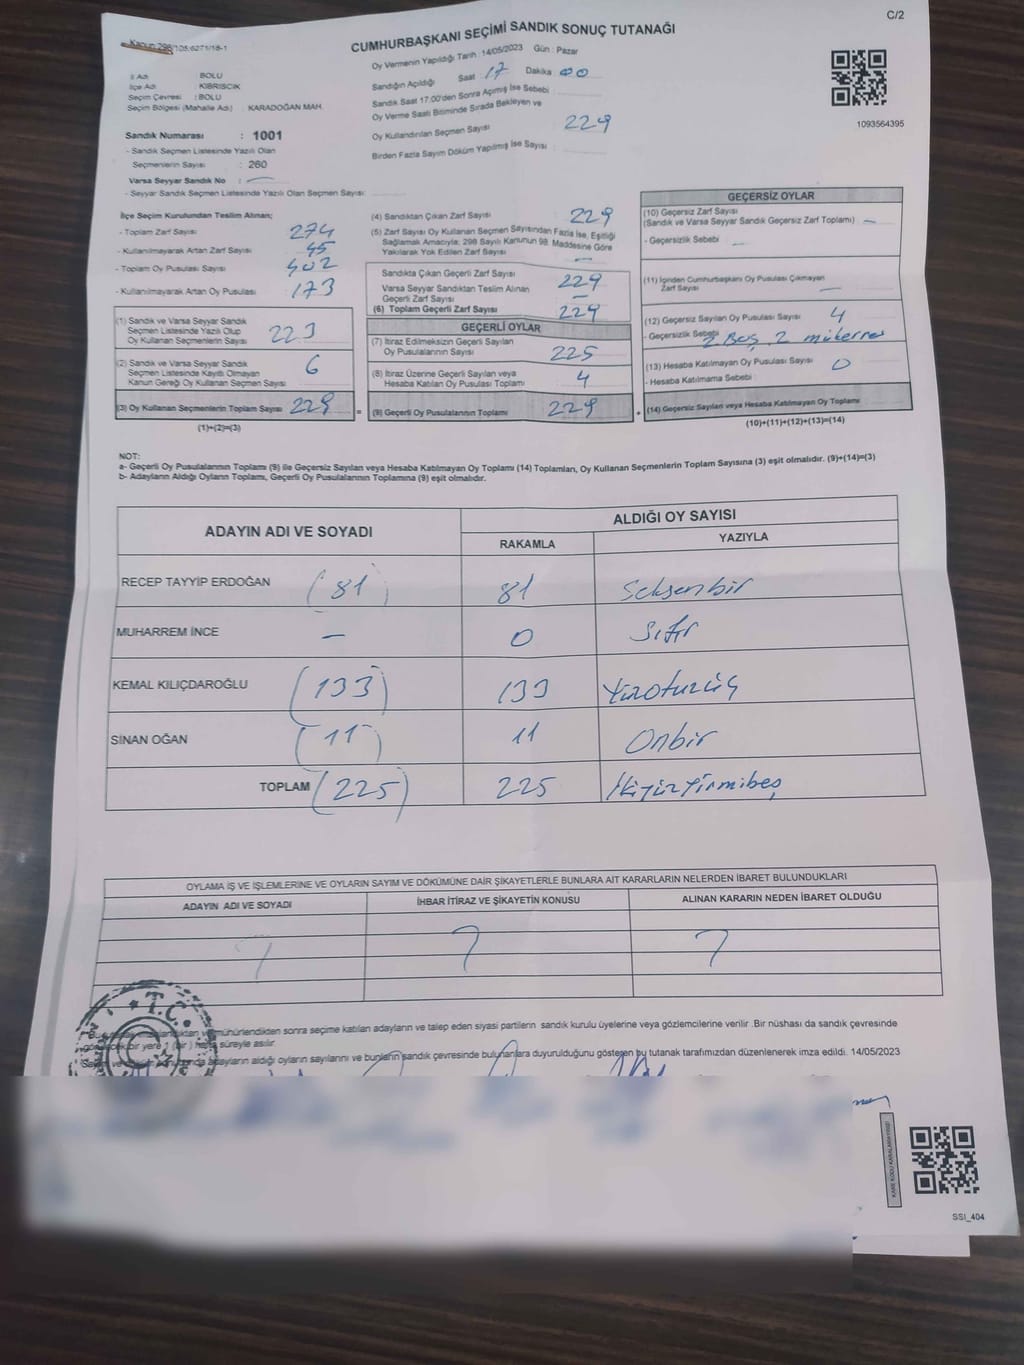 C/2
CUMHURBAŞKANI SEÇİMİ SANDIK SONUÇ TUTANAĞI
Kanun: 298/105:6271/18-1
Oy Vermenin Yapıldığı Tarih : 14/05/2023 Gün : Pazar
İl Adı : BOLU
İlçe Adı : KIBRISCIK
Seçim Çevresi : BOLU
Seçim Bölgesi (Mahalle Adı) : KARADOĞAN MAH.
Sandık Numarası : 1001
- Sandık Seçmen Listesinde Yazılı Olan
Seçmenlerin Sayısı : 260
Varsa Seyyar Sandık No : —
- Seyyar Sandık Seçmen Listesinde Yazılı Olan Seçmen Sayısı:
Sandığın Açıldığı Saat 17 Dakika 00
Sandık Saat 17:00'den Sonra Açımış İse Sebebi :
Oy Verme Saati Bitiminde Sırada Bekleyen ve
Oy Kullandırılan Seçmen Sayısı : 229
Birden Fazla Sayım Döküm Yapılmış İse Sayısı :
1093564395
İlçe Seçim Kurulundan Teslim Alınan;
- Toplam Zarf Sayısı : 274
- Kullanılmayarak Artan Zarf Sayısı : 45
- Toplam Oy Pusulası Sayısı : 402
- Kullanılmayarak Artan Oy Pusulası : 173
(1) Sandık ve Varsa Seyyar Sandık
Seçmen Listesinde Yazılı Olup
Oy Kullanan Seçmenlerin Sayısı : 223
(2) Sandık ve Varsa Seyyar Sandık
Seçmen Listesinde Kayıtlı Olmayan
Kanun Gereği Oy Kullanan Seçmen Sayısı : 6
(3) Oy Kullanan Seçmenlerin Toplam Sayısı 229 =
(1)+(2)=(3)
(4) Sandıktan Çıkan Zarf Sayısı : 229
(5) Zarf Sayısı Oy Kullanan Seçmen Sayısından Fazla İse, Eşitliği
Sağlamak Amacıyla; 298 Sayılı Kanunun 98. Maddesine Göre
Yakılarak Yok Edilen Zarf Sayısı : —
Sandıkta Çıkan Geçerli Zarf Sayısı : 229
Varsa Seyyar Sandıktan Teslim Alınan
Geçerli Zarf Sayısı : —
(6) Toplam Geçerli Zarf Sayısı : 229
GEÇERLİ OYLAR
(7) İtiraz Edilmeksizin Geçerli Sayılan
Oy Pusulalarının Sayısı : 225
(8) İtiraz Üzerine Geçerli Sayılan veya
Hesaba Katılan Oy Pusulası Toplamı : 4
(9) Geçerli Oy Pusulalarının Toplamı : 229 +
GEÇERSİZ OYLAR
(10) Geçersiz Zarf Sayısı
(Sandık ve Varsa Seyyar Sandık Geçersiz Zarf Toplamı) : —
- Geçersizlik Sebebi : —
(11) İçinden Cumhurbaşkanı Oy Pusulası Çıkmayan
Zarf Sayısı : —
(12) Geçersiz Sayılan Oy Pusulası Sayısı : 4
- Geçersizlik Sebebi : 2 Boş, 2 mükerrer
(13) Hesaba Katılmayan Oy Pusulası Sayısı : 0
- Hesaba Katılmama Sebebi :
(14) Geçersiz Sayılan veya Hesaba Katılmayan Oy Toplamı :
(10)+(11)+(12)+(13)=(14)
NOT:
a- Geçerli Oy Pusulalarının Toplamı (9) ile Geçersiz Sayılan veya Hesaba Katılmayan Oy Toplamı (14) Toplamları, Oy Kullanan Seçmenlerin Toplam Sayısına (3) eşit olmalıdır. (9)+(14)=(3)
b- Adayların Aldığı Oyların Toplamı, Geçerli Oy Pusulalarının Toplamına (9) eşit olmalıdır.
ADAYIN ADI VE SOYADI ALDIĞI OY SAYISI
RAKAMLA YAZIYLA
RECEP TAYYİP ERDOĞAN (81) 81 Seksenbir
MUHARREM İNCE — 0 Sıfır
KEMAL KILIÇDAROĞLU (133) 133 Yüzotuzüç
SİNAN OĞAN (11) 11 Onbir
TOPLAM (225) 225 İkiyüzyirmibeş
OYLAMA İŞ VE İŞLEMLERİNE VE OYLARIN SAYIM VE DÖKÜMÜNE DAİR ŞİKAYETLERLE BUNLARA AİT KARARLARIN NELERDEN İBARET BULUNDUKLARI
ADAYIN ADI VE SOYADI İHBAR İTİRAZ VE ŞİKAYETİN KONUSU ALINAN KARARIN NEDEN İBARET OLDUĞU
T.C.
mühürlendikten sonra seçime katılan adayların ve talep eden siyasi partilerin sandık kurulu üyelerine veya gözlemcilerine verilir .Bir nüshası da sandık çevresinde
bir yere 1 (bir) hafta süreyle asılır.
adayların aldığı oyların sayılarını ve bunların sandık çevresinde bulunanlara duyurulduğunu gösteren bu tutanak tarafımızdan düzenlenerek imza edildi. 14/05/2023
SSI_404